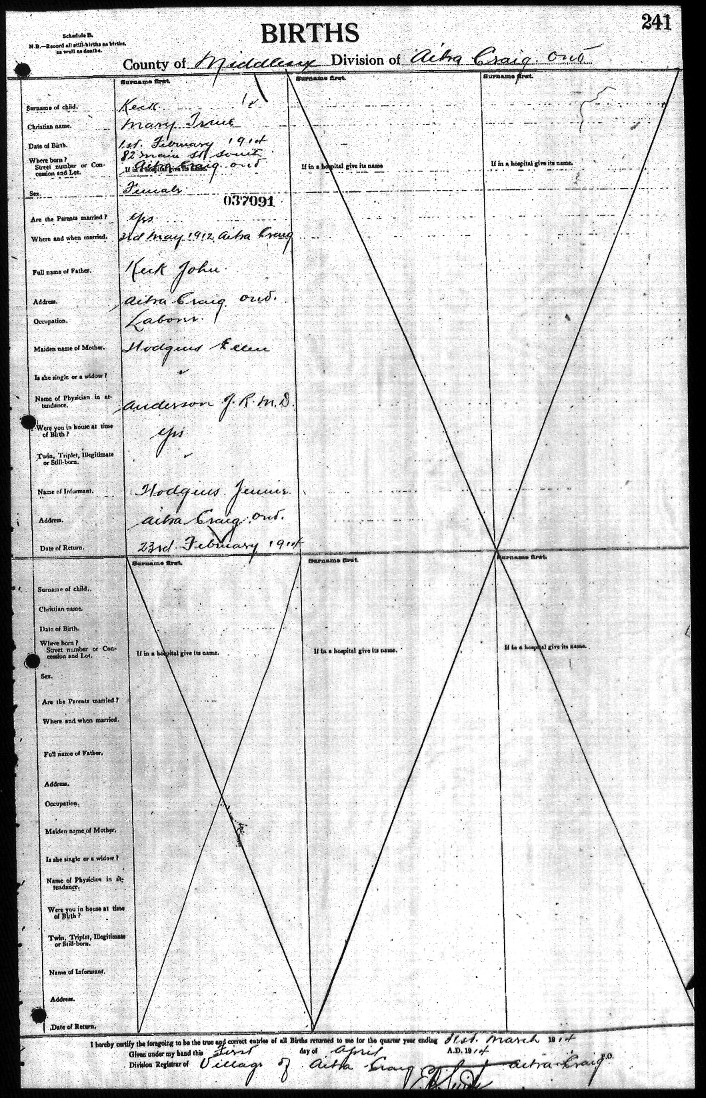 Schedule B.
N.B.—Record all still-births as births, as well as deaths.
BIRTHS
241
County of Middlesex Division of Ailsa Craig Ont
Surname first.
Surname first.
Surname first.
Surname of child. Keck
Christian name. Mary Irene
Date of Birth. 1st. February 1914
Where born? Street number or Concession and Lot. 82 Main St. South Ailsa Craig Ont
If in a hospital give its name.
If in a hospital give its name
If in a hospital give its name.
Sex. Female
037091
Are the Parents married? Yes
Where and when married. 3rd May 1912 Ailsa Craig
Full name of Father. Keck John.
Address. Ailsa Craig Ont.
Occupation. Labour.
Maiden name of Mother. Hodgins Ellen
Is she single or a widow?
Name of Physician in attendance. Anderson J. R. M.D.
Were you in house at time of Birth? Yes
Twin, Triplet, Illegitimate or Still-born.
Name of Informant. Hodgins Jennie
Address. Ailsa Craig, Ont.
Date of Return. 23rd. February 1914
Surname first.
Surname first.
Surname first.
Surname of child.
Christian name.
Date of Birth.
Where born? Street number or Concession and Lot.
If in a hospital give its name.
If in a hospital give its name.
If in a hospital give its name.
Sex.
Are the Parents married?
Where and when married.
Full name of Father.
Address.
Occupation.
Maiden name of Mother.
Is she single or a widow?
Name of Physician in attendance.
Were you in house at time of Birth?
Twin, Triplet, Illegitimate or Still-born.
Name of Informant.
Address.
Date of Return.
I hereby certify the foregoing to be the true and correct entries of all Births returned to me for the quarter year ending 31st. March 1914
Given under my hand this First day of April A.D. 1914
Division Registrar of Village of Ailsa Craig Ailsa Craig P.O.